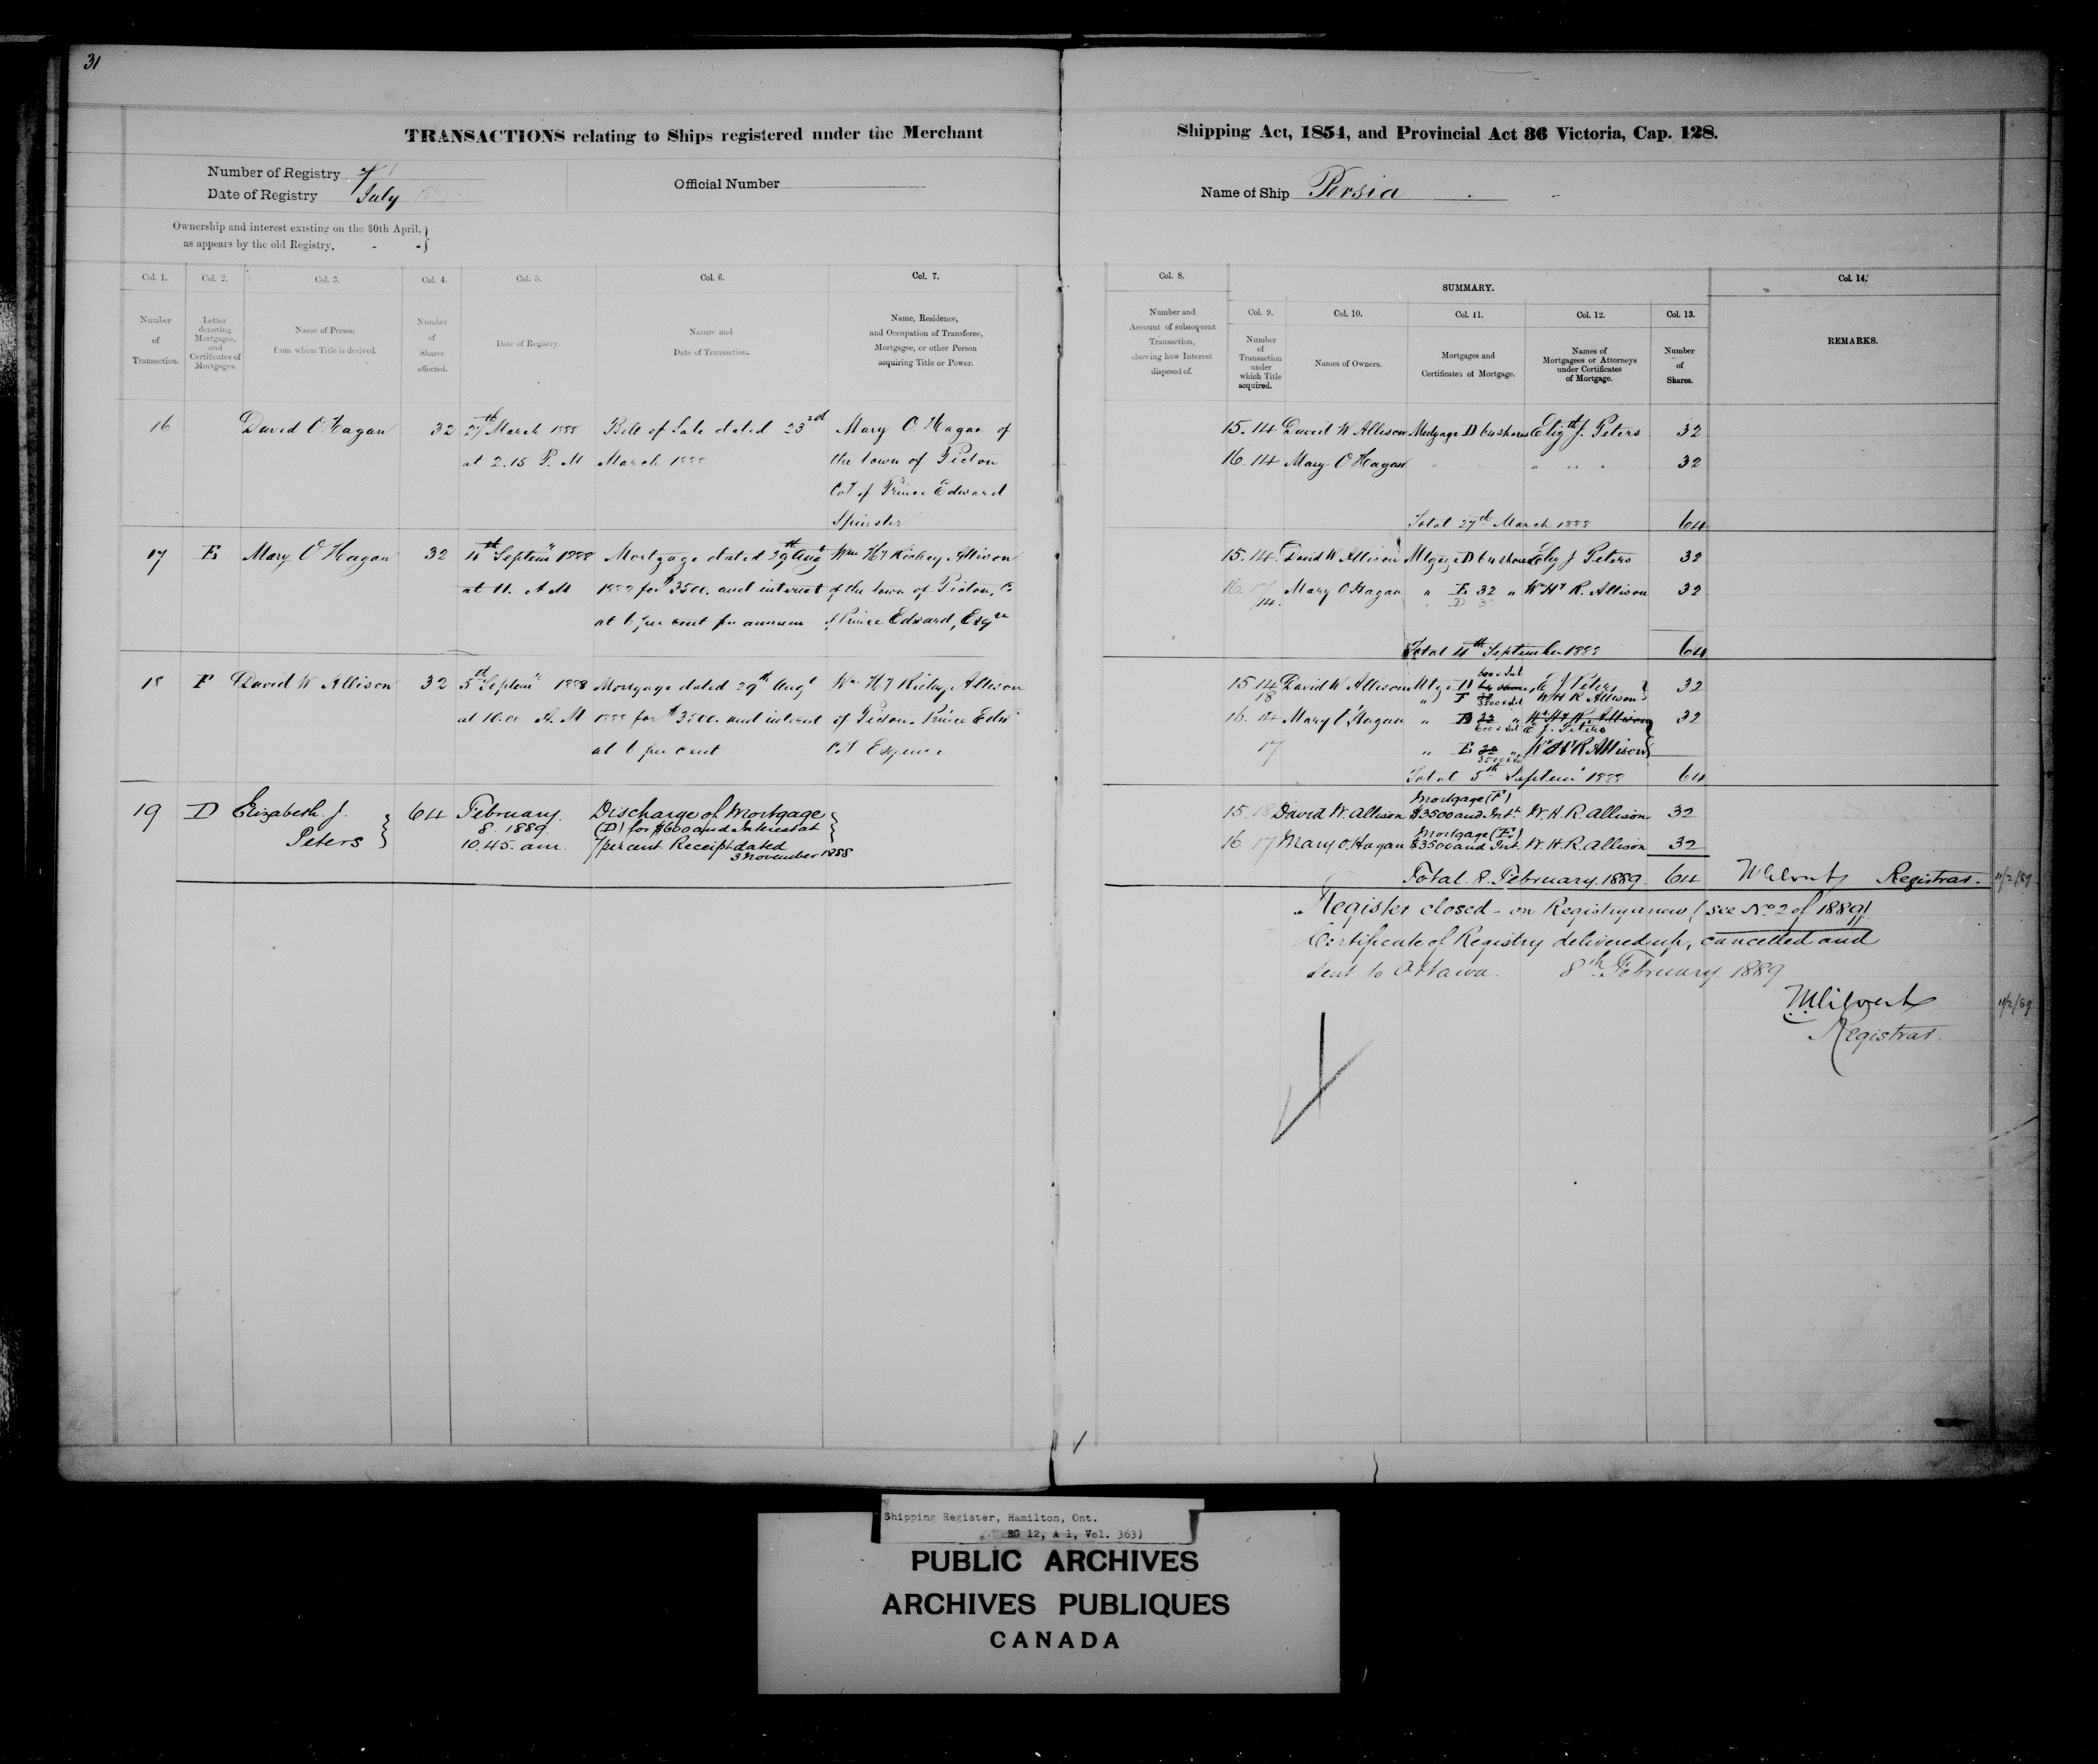 31
TRANSACTIONS relating to Ships registered under the Merchant Shipping Act, 1854, and Provincial Act 36 Victoria, Cap. 128.
Number of Registry
Date of Registry July
Official Number
Name of Ship Persia
Ownership and interest existing on the 30th April,
as appears by the old Registry.
Col. 1. Col. 2. Col. 3. Col. 4. Col. 5. Col. 6. Col. 7.
Number of Transaction.
Letter denoting Mortgages, and Certificates of Mortgages.
Name of Person from whom Title is derived.
Number of Shares affected.
Date of Registry.
Nature and Date of Transaction.
Name, Residence, and Occupation of Transferee, Mortgagee, or other Person acquiring Title or Power.
16 David O'Hagan 32 27th March 1888 Bill of Sale dated 23rd Mary O'Hagan of
at 2.15 P. M March 1888 the town of Picton
Coy of Prince Edward
Spinster
17 E Mary O'Hagan 32 4th Septem 1888 Mortgage dated 29th Augt Wm Hy Allison
at 11. A M 1888 for $3500. and interest of the town of Picton, Co
at 6 per cent per annum of Prince Edward, Esqre
18 F David W Allison 32 5th Septemr 1888 Mortgage dated 29th Augt Wm Hy Allison
at 10.00 A. M 1888 for $3500. and interest of Picton. Prince Edwd
at 6 per cent Coy Esquire
19 D Elizabeth J. 64 February Discharge of Mortgage
Peters 8. 1889. (D) for $600 and Interest at
10.45. am. 7 per cent. Receipt dated
3 November 1888
Col. 8.
Number and Account of subsequent Transaction, showing how Interest disposed of.
SUMMARY.
Col. 9. Col. 10. Col. 11. Col. 12. Col. 13. Col. 14.
Number of Transaction under which Title acquired.
Names of Owners.
Mortgages and Certificates of Mortgage.
Names of Mortgagees or Attorneys under Certificates of Mortgage.
Number of Shares.
REMARKS.
15. 14 David W Allison Mortgage D 64 shares Elizth J. Peters 32
16. 14 Mary O'Hagan " " " 32
Total 27th March 1888 64
15. 14. David W Allison Mtgage D 64 shares Eliz J Peters 32
16. 17 Mary O'Hagan " E 32 " Wm Hy R. Allison 32
14. " D 32
Total 4th September 1888 64
600 & Int
15 14 David W Allison Mtge D 64 shares E J Peters 32
18 " F 32 W H R Allison
3500 & Int
16. 14 Mary O'Hagan " D 32 " Wm Hy R. Allison 32
600 & Int E J. Peters
17 " E 32 " Wm Hy R Allison
3500 & Int
Total 5th Septemr 1888 64
Mortgage (F)
15. 18 David W. Allison $3500 and Intt. W. H. R. Allison 32
Mortgage (E)
16 17 Mary O'Hagan $3500 and Int. W. H. R. Allison 32
Total. 8. February. 1889. 64 Registrar. 11/2/89
Register closed - on Registry anew (see No 2 of 1889)
Certificate of Registry delivered up, cancelled and
sent to Ottawa. 8th February 1889
11/2/89
Registrar.
Shipping Register, Hamilton, Ont.
RG 12, A 1, Vol. 363)
PUBLIC ARCHIVES
ARCHIVES PUBLIQUES
CANADA